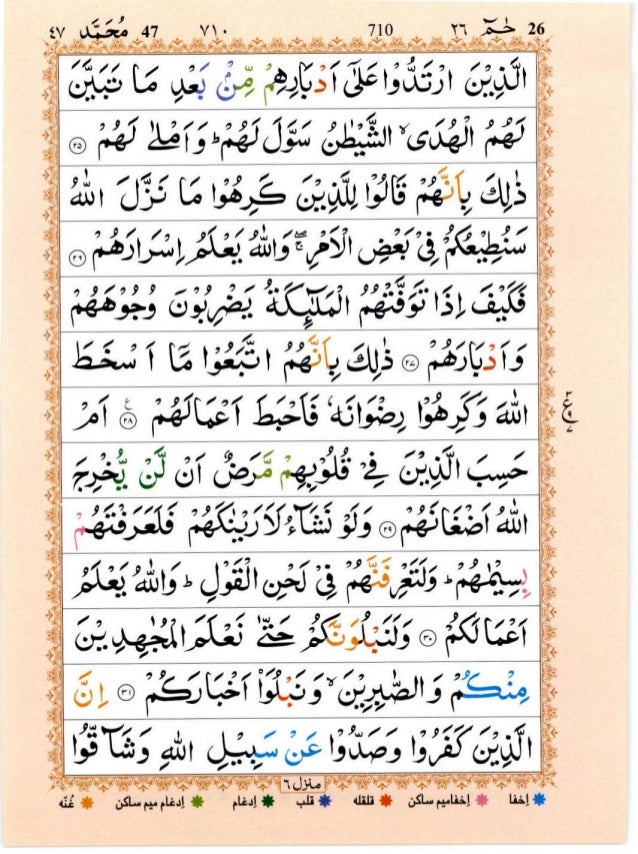 26 حٰمٓ ٢٦ 710 ٧١٠ 47 مُحَمَّد ٤٧
الَّذِيْنَ ارْتَدُّوْا عَلٰٓى اَدْبَارِهِمْ مِّنْۢ بَعْدِ مَا تَبَيَّنَ
لَهُمُ الْهُدَى ۙ الشَّيْطٰنُ سَوَّلَ لَهُمْ ؕ وَاَمْلٰى لَهُمْ ۟۲۵
ذٰلِكَ بِاَنَّهُمْ قَالُوْا لِلَّذِيْنَ كَرِهُوْا مَا نَزَّلَ اللّٰهُ
سَنُطِيْعُكُمْ فِيْ بَعْضِ الْاَمْرِ ۖۚ وَاللّٰهُ يَعْلَمُ اِسْرَارَهُمْ ۟۲۶
فَكَيْفَ اِذَا تَوَفَّتْهُمُ الْمَلٰٓئِكَةُ يَضْرِبُوْنَ وُجُوْهَهُمْ
وَاَدْبَارَهُمْ ۟۲۷ ذٰلِكَ بِاَنَّهُمُ اتَّبَعُوْا مَاۤ اَسْخَطَ
اللّٰهَ وَكَرِهُوْا رِضْوَانَهٗ فَاَحْبَطَ اَعْمَالَهُمْ ۟۲۸ ع اَمْ
حَسِبَ الَّذِيْنَ فِيْ قُلُوْبِهِمْ مَّرَضٌ اَنْ لَّنْ يُّخْرِجَ
اللّٰهُ اَضْغَانَهُمْ ۟۲۹ وَلَوْ نَشَآءُ لَاَرَيْنٰكَهُمْ فَلَعَرَفْتَهُمْ
بِسِيْمٰهُمْ ؕ وَلَتَعْرِفَنَّهُمْ فِيْ لَحْنِ الْقَوْلِ ؕ وَاللّٰهُ يَعْلَمُ
اَعْمَالَكُمْ ۟۳۰ وَلَنَبْلُوَنَّكُمْ حَتّٰى نَعْلَمَ الْمُجٰهِدِيْنَ
مِنْكُمْ وَالصّٰبِرِيْنَ ۙ وَنَبْلُوَا۟ اَخْبَارَكُمْ ۟۳۱ اِنَّ
الَّذِيْنَ كَفَرُوْا وَصَدُّوْا عَنْ سَبِيْلِ اللّٰهِ وَشَآقُّوا
منزل ٦
إخفا إخفامیم ساکن قلقله قلب إدغام إدغام میم ساکن غُنّه